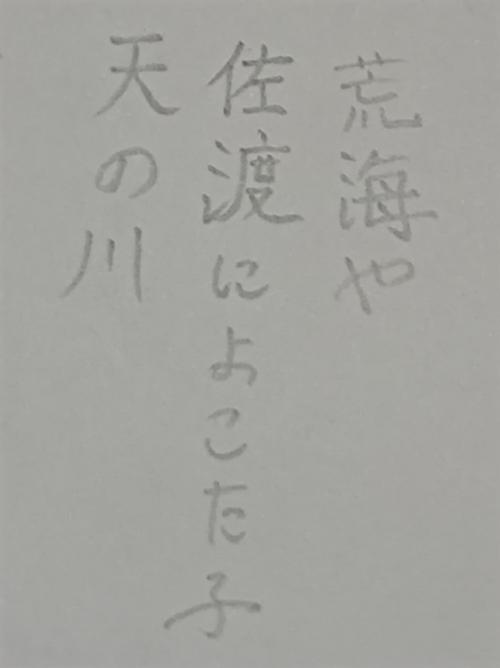 荒海や
佐渡によこた子
天の川